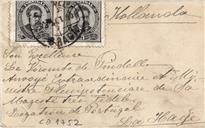 Hollanda
Son Excellence
Le Vicomte de Pindella
Envoyé Extraordinaire et Mi-
nistre Plenipotenciaire de Sa
Majesté très Fidèle
Legation de Portugal
La Haye
CD 1752